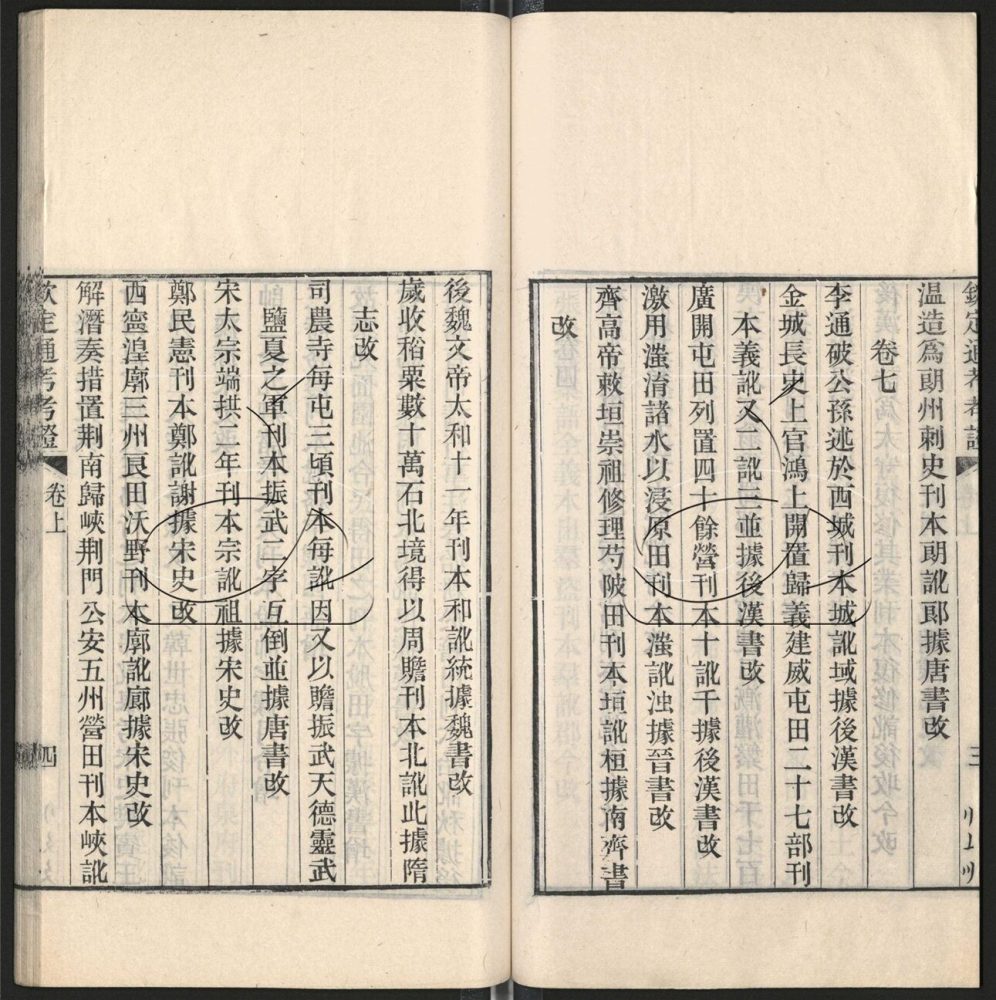 欽定通考考證
三
温造爲朗州刺史刊本朗訛郎據唐書改
卷七
李通破公孫述於西城刊本城訛域據後漢書改
金城長史上官鴻上開置歸義建威屯田二十七部刊
本義訛又二訛三並據後漢書改
廣開屯田列置四十餘營刊本十訛千據後漢書改
激用滍淯諸水以浸原田刊本滍訛浊據晉書改
齊高帝敕垣崇祖修理芍陂田刊本垣訛桓據南齊書
改
後魏文帝太和十一年刊本和訛統據魏書改
歲收稻粟數十萬石北境得以周贍刊本北訛此據隋
志改
司農寺每屯三頃刊本每訛因又以贍振武天德靈武
鹽夏之軍刊本振武二字互倒並據唐書改
宋太宗端拱二年刊本宗訛祖據宋史改
鄭民憲刊本鄭訛謝據宋史改
西寧湟廓三州良田沃野刊本廓訛廊據宋史改
解潛奏措置荆南歸峽荆門公安五州營田刊本峽訛
欽定通考考證
卷上
四